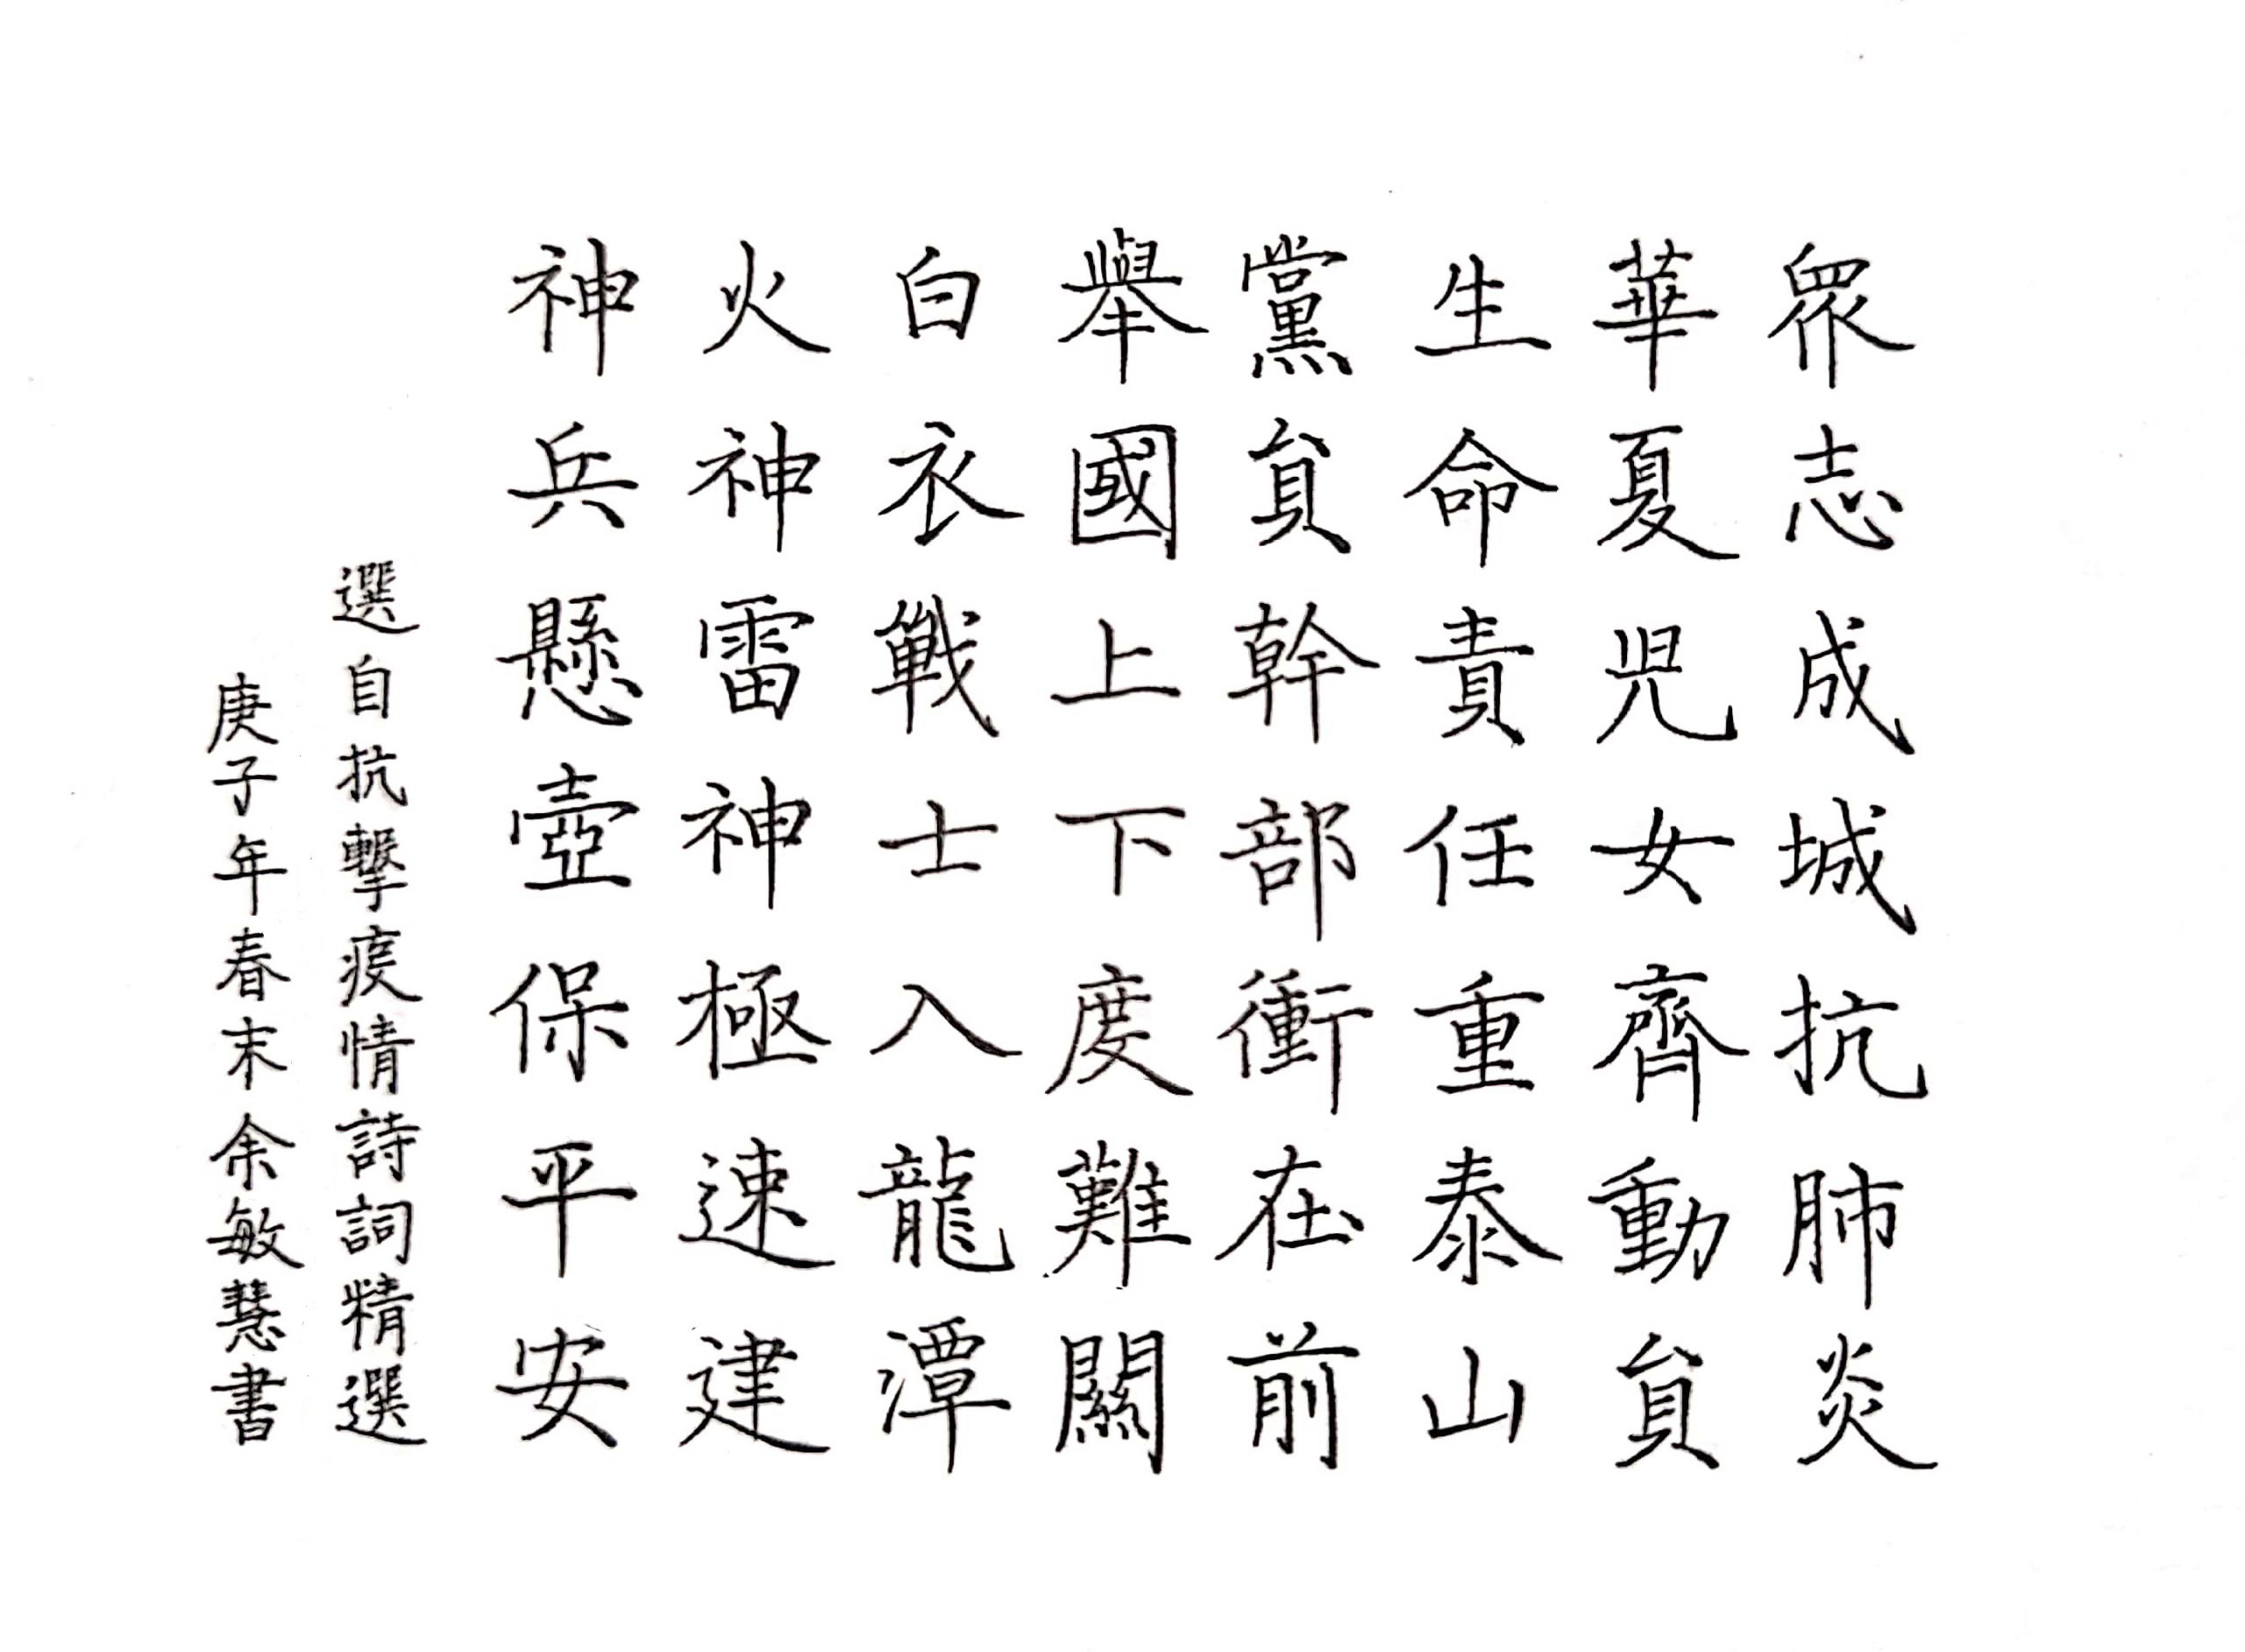 眾志成城抗肺炎
華夏児女齊動員
生命責任重泰山
黨員幹部衝在前
舉國上下度難關
白衣戰士入龍潭
火神雷神極速建
神兵懸壺保平安
選自抗擊疫情詩詞精選
庚子年春末余敏慧書